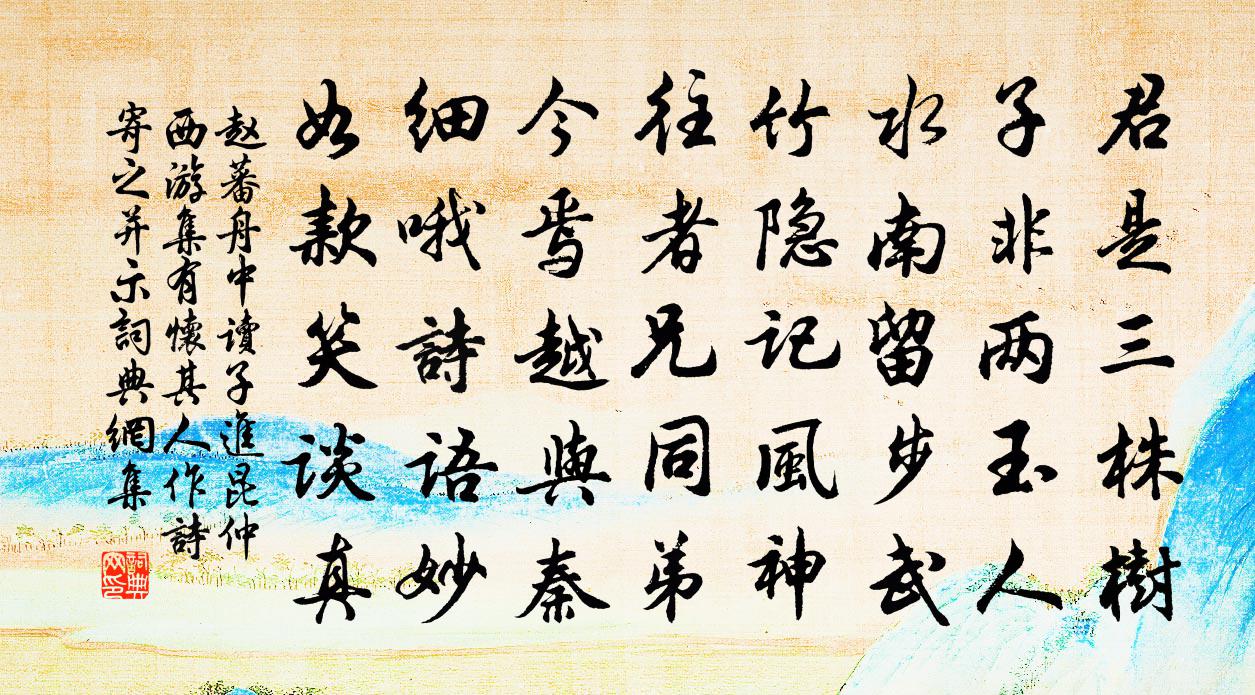 君是三株樹
子非两玉人
水南留步武
竹隐記風神
往者兄同弟
今焉越與秦
细哦詩語妙
如款笑談真
赵蕃舟中讀子進昆仲
西游集有懷其人作詩
寄之并示詞典網集
詞典
网印